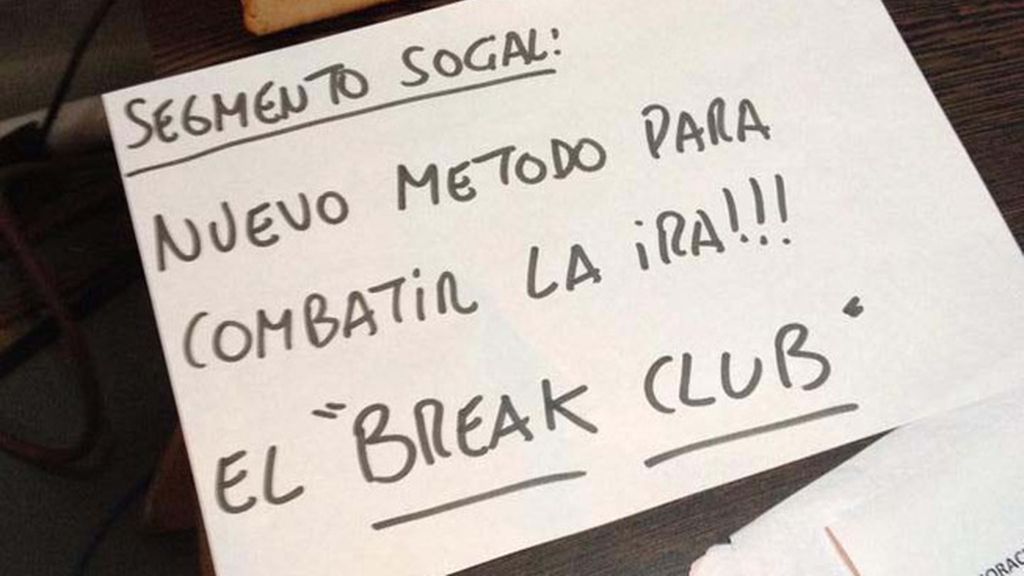 SEGMENTO SOCIAL:
NUEVO METODO PARA
COMBATIR LA iRA!!!
EL "BREAK CLUB"